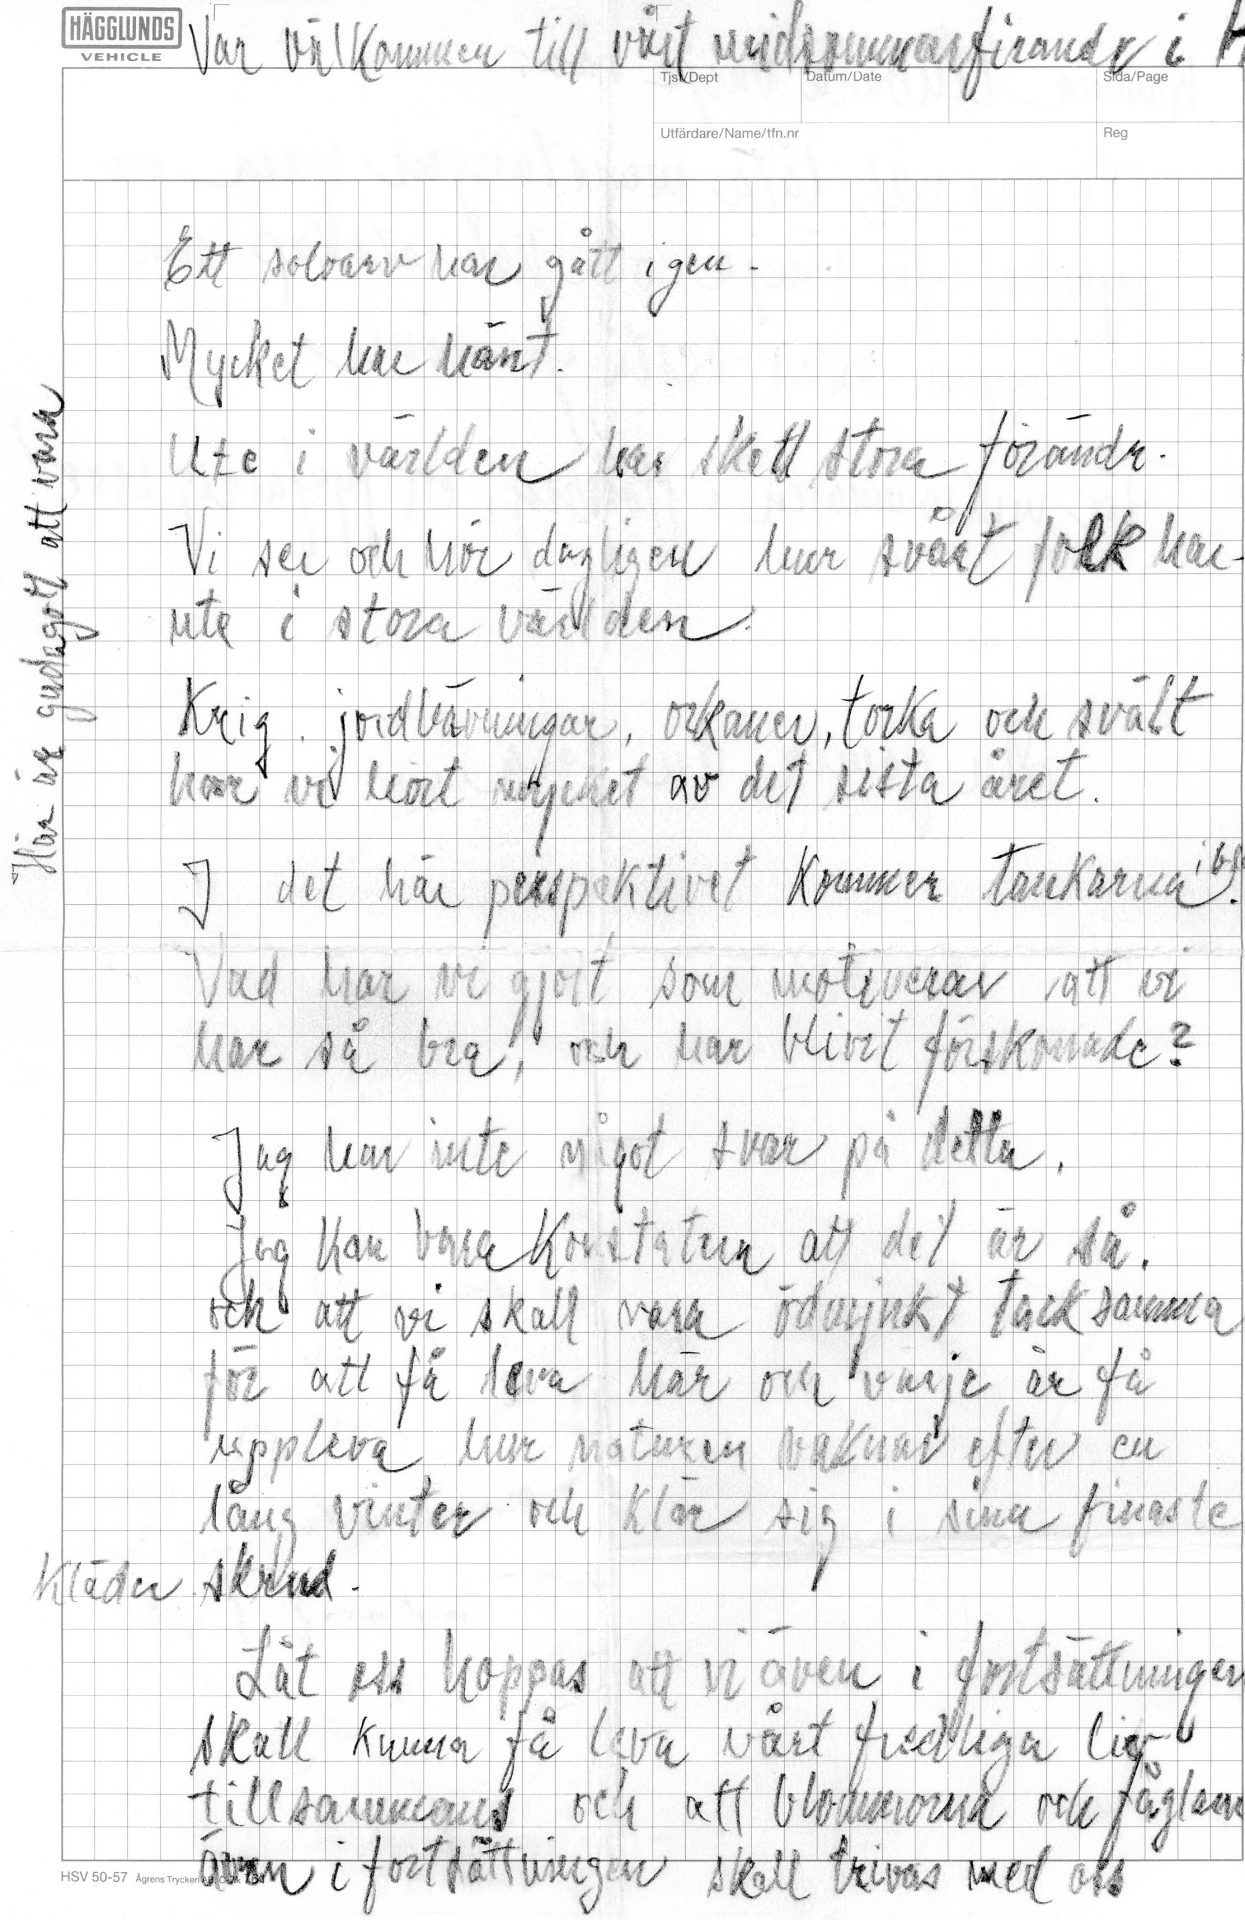 HÄGGLUNDS
VEHICLE
Var välkommen till vårt midsommarfirande i
Tjst/Dept
Datum/Date
Sida/Page
Utfärdare/Name/tfn.nr
Reg
Ett solvarv har gått igen.
Mycket har hänt.
Ute i världen har skett stora förändr.
Vi ser och hör dagligen hur svårt folk har
ute i stora världen.
Krig, jordbävningar, orkaner, torka och svält
har vi hört mycket av det sista året.
I det här perspektivet kommer tankarna
Vad har vi gjort som motiverar att vi
har så bra, och har blivit förskonade?
Jag har inte något svar på detta.
Jag kan bara konstatera att det är så.
och att vi skall vara ödmjukt tacksamma
för att få leva här och varje år få
uppleva hur naturen vaknar efter en
lång vinter och klär sig i sina finaste
kläder skrud.
Låt oss hoppas att vi även i fortsättningen
skall kunna få leva vårt fredliga liv
tillsammans och att blommorna och fåglarna
även i fortsättningen skall trivas med oss
Här är gudagott att vara
HSV 50-57